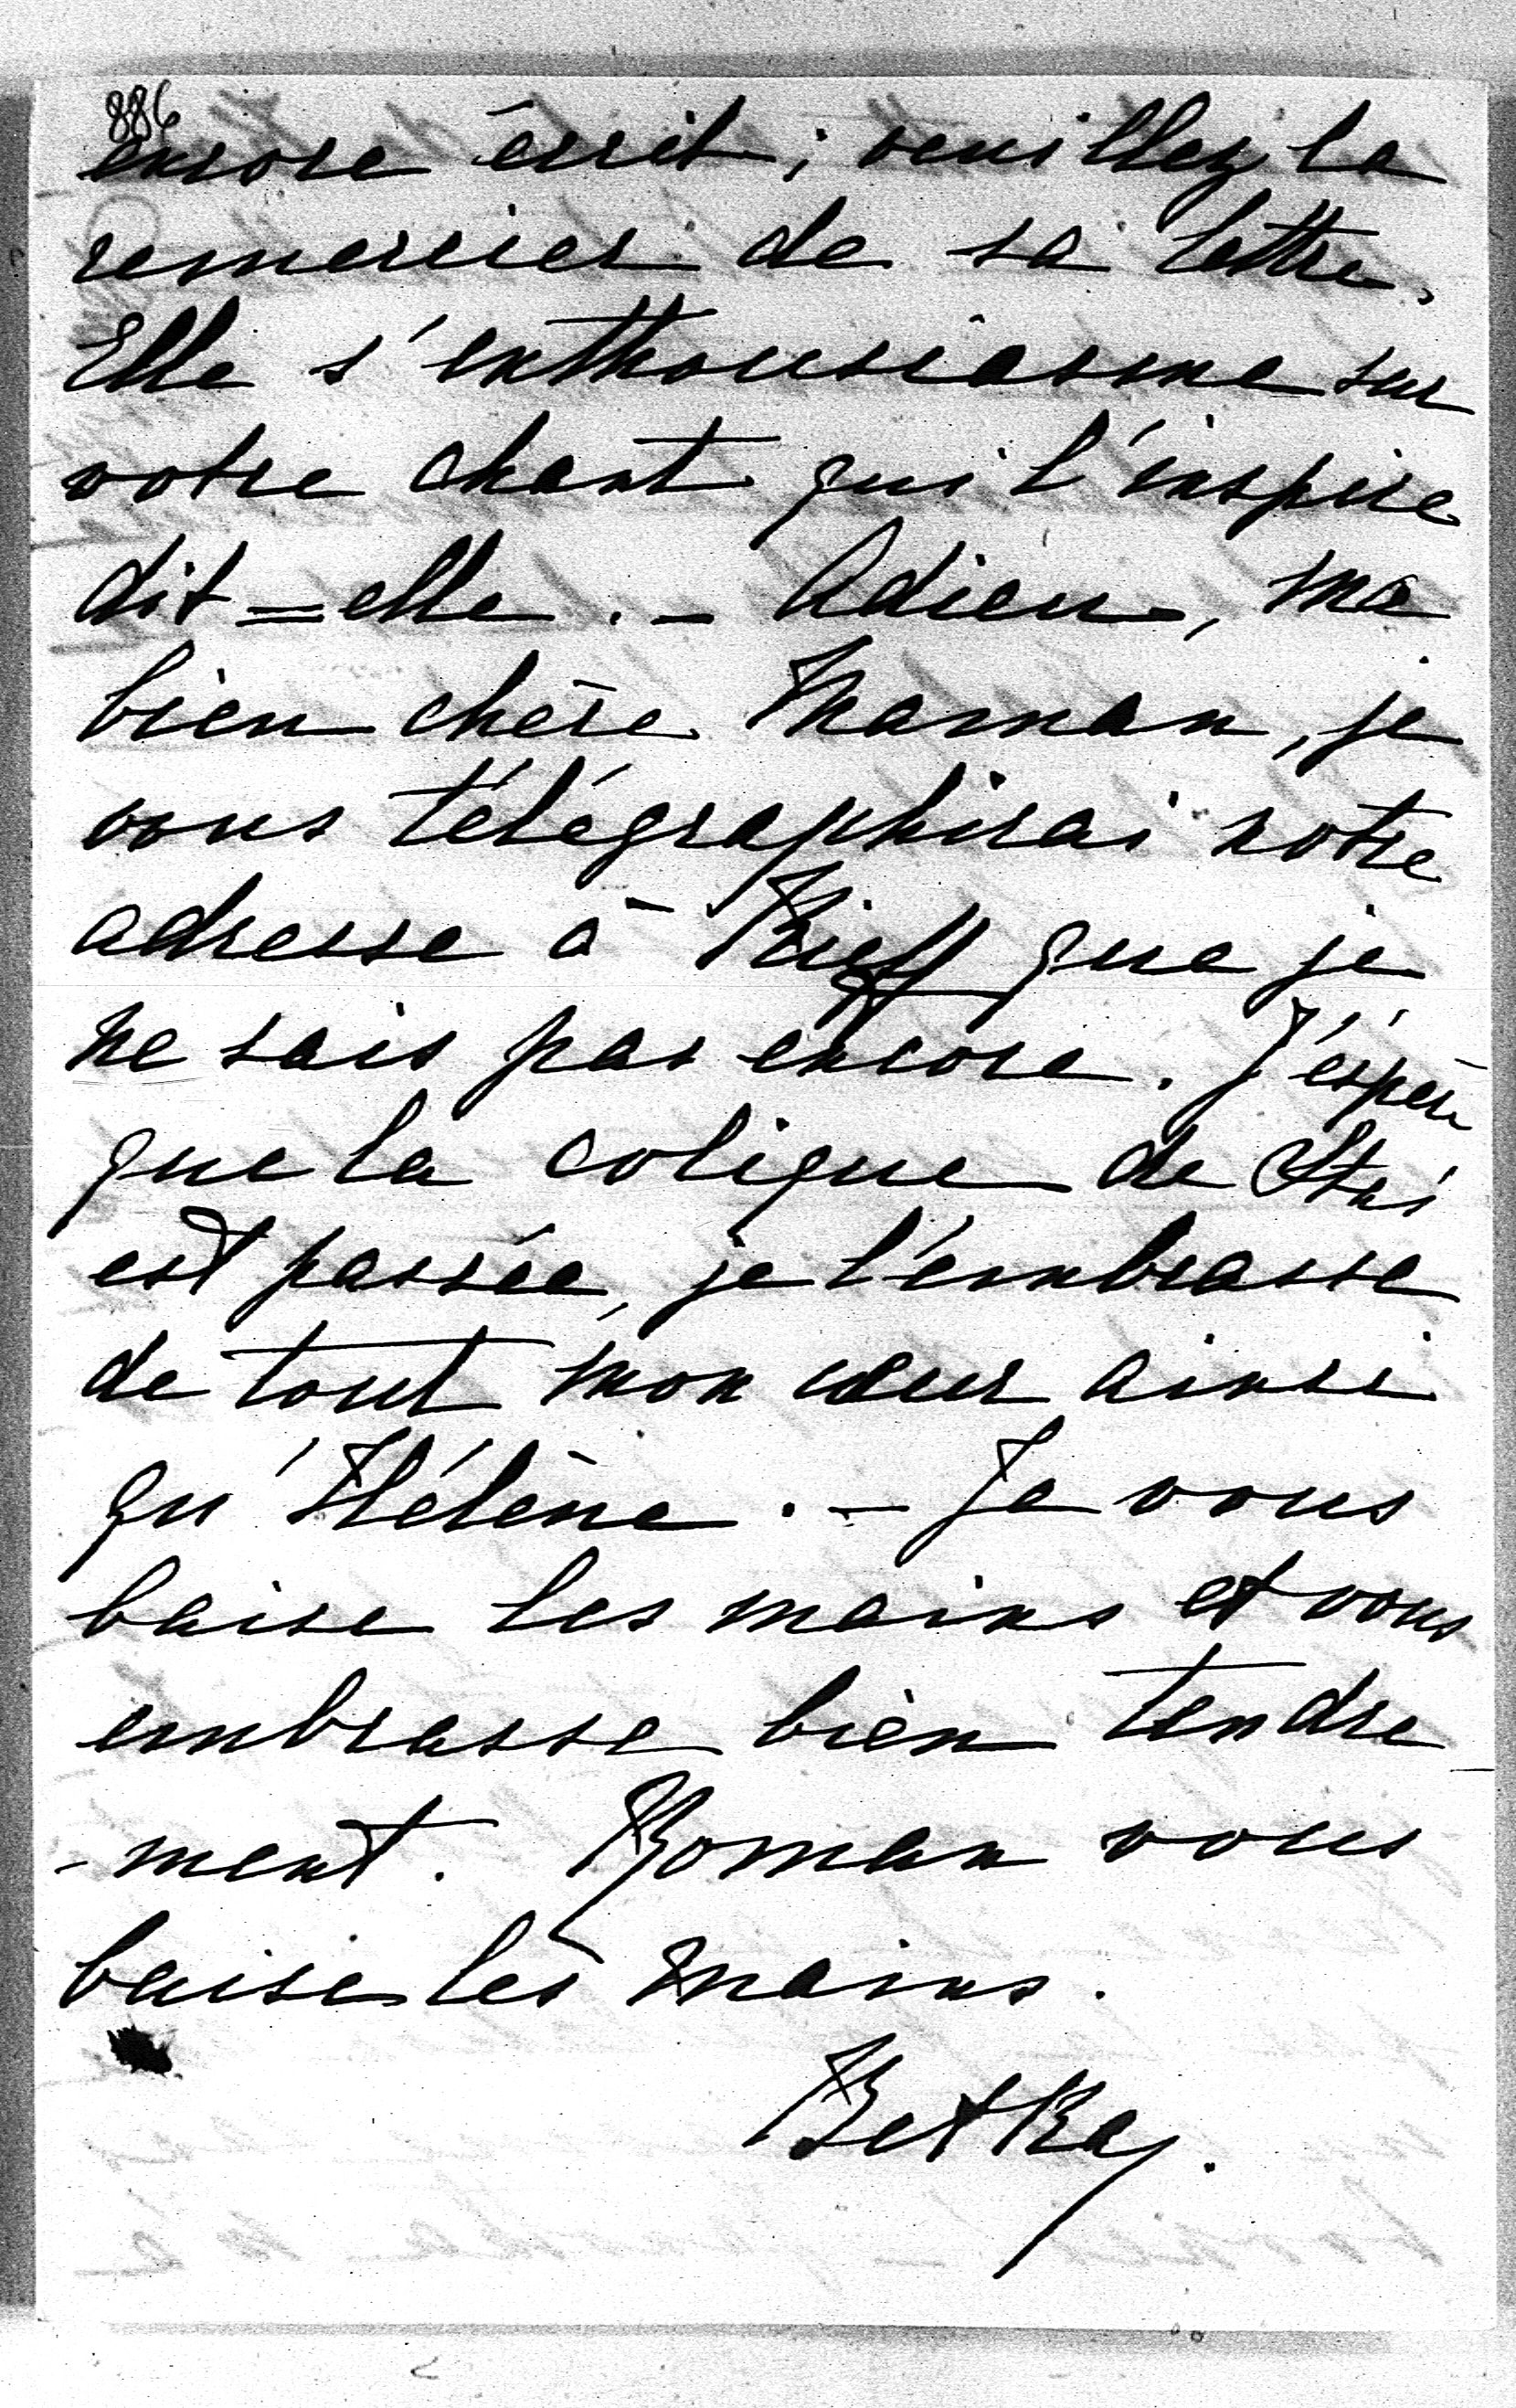 886
encore écrit; veuillez la
remercier de sa lettre.
Elle s'enthousiasme sur
votre chant qui l'inspire
dit=elle. – Adieu, ma
bien chère Maman, je
vous télégraphirai notre
adresse à Kieff que je
ne sais pas encore. J'espère
que la colique de Staś
est passée, je l'embrasse
de tout mon cœur ainsi
qu'Hélène. – Je vous
baise les mains et vous
embrasse bien tendre
-ment. Roman vous
baise les mains.
Betka.